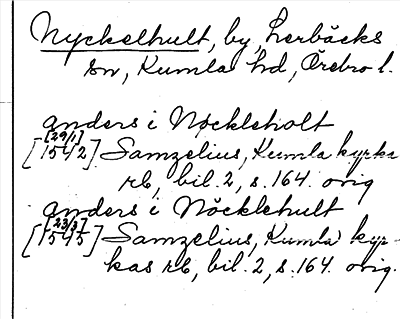 Nyckelhult, by, Lerbäcks
sn, Kumla hd, Örebro l.
anders i Nøckleholt
[29/1]
[1542] Samzelius, Kumla kyrka
rb, bil. 2, s. 164. orig
anders i Nöcklehult
[23/3]
[1545] Samzelius, Kumla kyr-
kas rb, bil. 2, s. 164. orig.